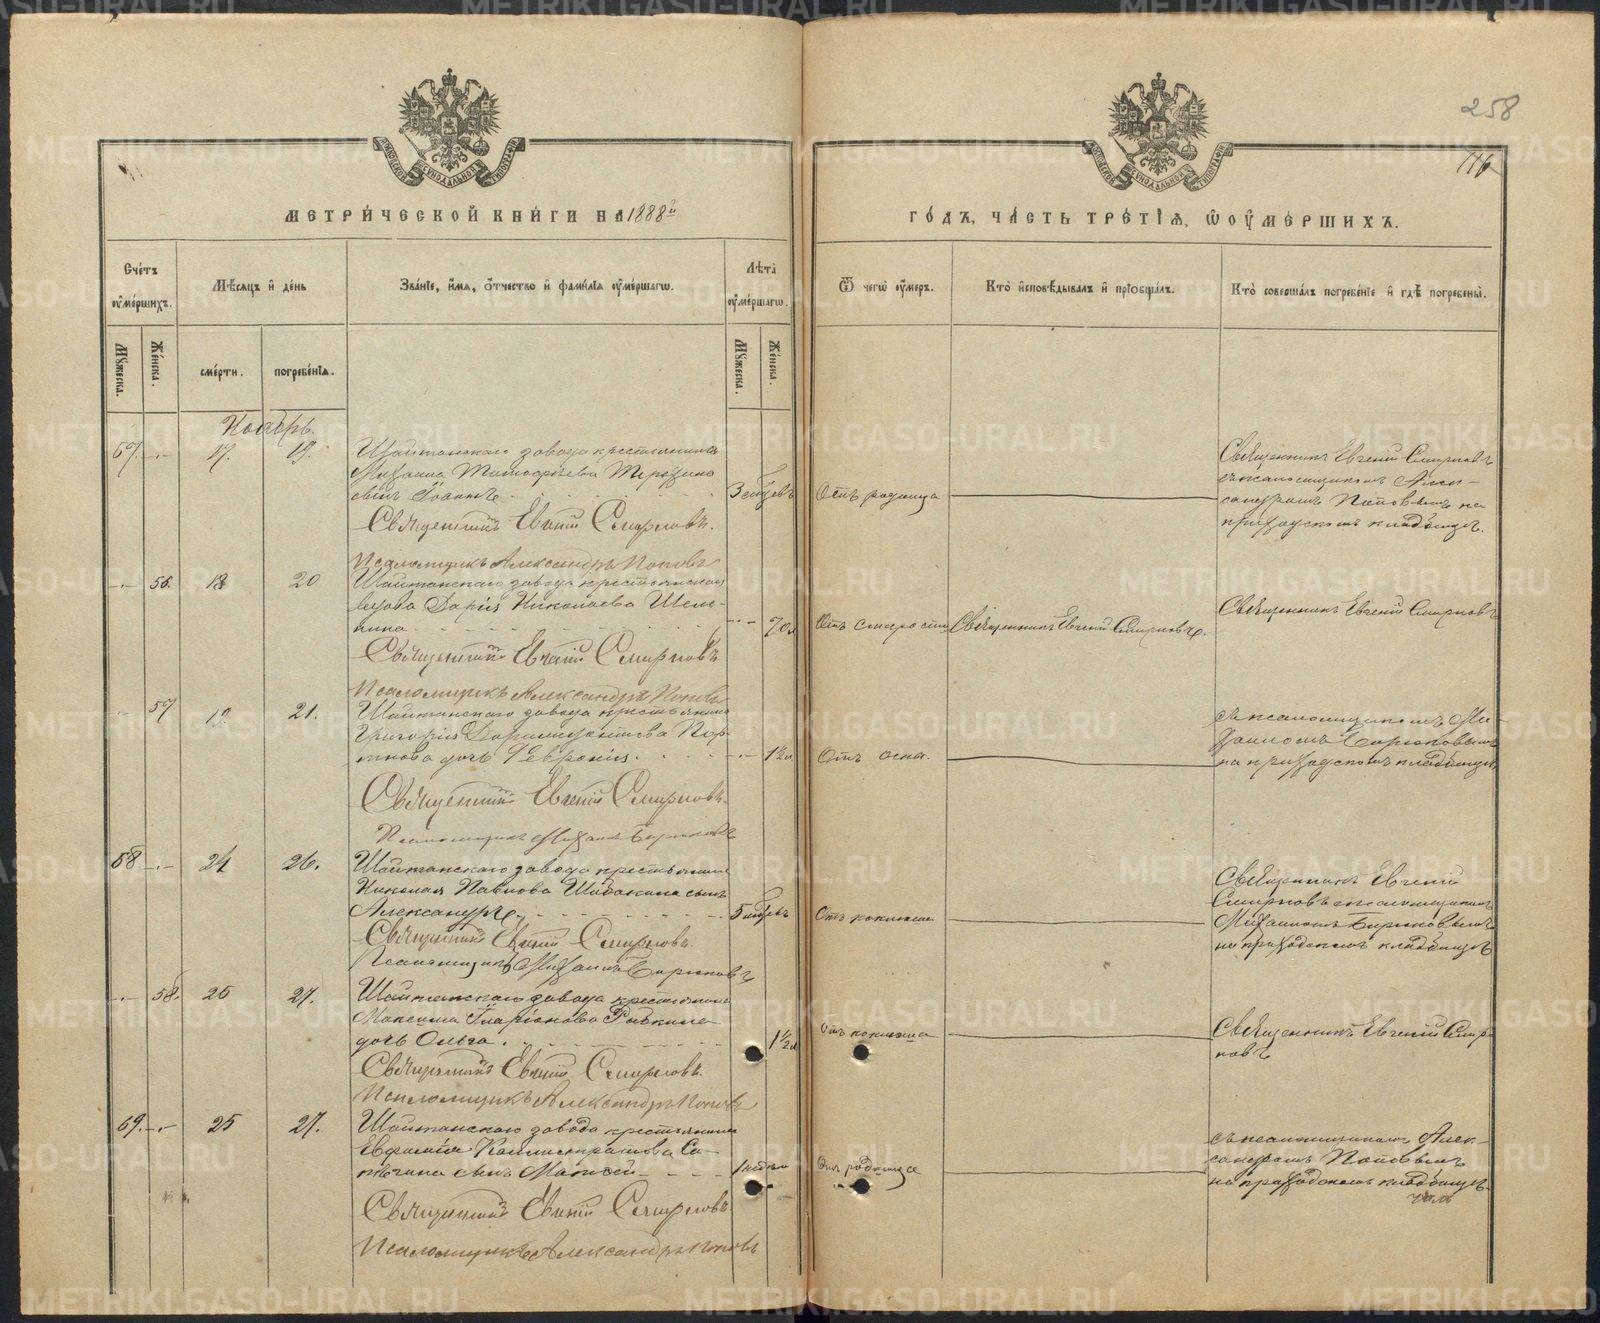 258
116
МЕТРИЧЕСКОЙ КНИГИ НА 1888й
ГОДЪ, ЧАСТЬ ТРЕТІѦ, Ѡ ОУМЕРШИХЪ.
Счетъ оумершихъ.
Мѣсяцъ и день
Званіе, имя, отчество и фамилія оумершагѡ.
Лѣта оумершагѡ.
Ѿ чегѡ оумеръ.
Кто исповѣдывалъ и пріобщалъ.
Кто совершалъ погребеніе и гдѣ погребены.
Мужеска.
Женска.
смерти.
погребенія.
Мужеска.
Женска.
Ноябрь.
67. 17. 19.
Шайтанскаго завода крестьянина
Михаила Тимофѣева
сынъ Іоаннъ
3 мѣсяцевъ
Отъ родимца
Священникъ Евгеній Смирновъ
съ псаломщикомъ Алек-
сандромъ Поповымъ на
приходскомъ кладбищѣ.
Священникъ Евгеній Смирновъ.
Псаломщикъ Александръ Поповъ
56. 18 20
Шайтанскаго завода крестьянская
вдова Дарія Николаева
70 л
Отъ старости
Священникъ Евгеній Смирновъ.
Священникъ Евгеній Смирновъ
Священникъ Евгеній Смирновъ
Псаломщикъ Александръ Поповъ
57 19. 21.
Шайтанскаго завода крестьянина
Григорія
дочь Февронія.
1 1/2 л
Отъ оспы.
съ псаломщикомъ Ми-
хаиломъ Бирюковымъ
на приходскомъ кладбищѣ.
Священникъ Евгеній Смирновъ.
Псаломщикъ Михаилъ Бирюковъ
68 24 26.
Шайтанскаго завода крестьянина
Николая Павлова сынъ
Александръ.
5 мѣсяцевъ
Отъ коклюша
Священникъ Евгеній
Смирновъ съ псаломщикомъ
Михаиломъ Бирюковымъ
на приходскомъ кладбищѣ
Священникъ Евгеній Смирновъ.
Псаломщикъ Михаилъ Бирюковъ
58. 25 27.
Шайтанскаго завода крестьянина
Максима Иларіонова
дочь Ольга.
1 1/2 л
Отъ коклюша
Священникъ Евгеній Смир-
новъ
Священникъ Евгеній Смирновъ.
Псаломщикъ Александръ Поповъ
69. 25 27.
Шайтанскаго завода крестьянина
Евфимія Каллистратова
сынъ Моисей
Отъ родимца
съ псаломщикомъ Алек-
сандромъ Поповымъ
на приходскомъ кладбищѣ.
Священникъ Евгеній Смирновъ
Псаломщикъ Александръ Поповъ
METRIKI.GASO-URAL.RU